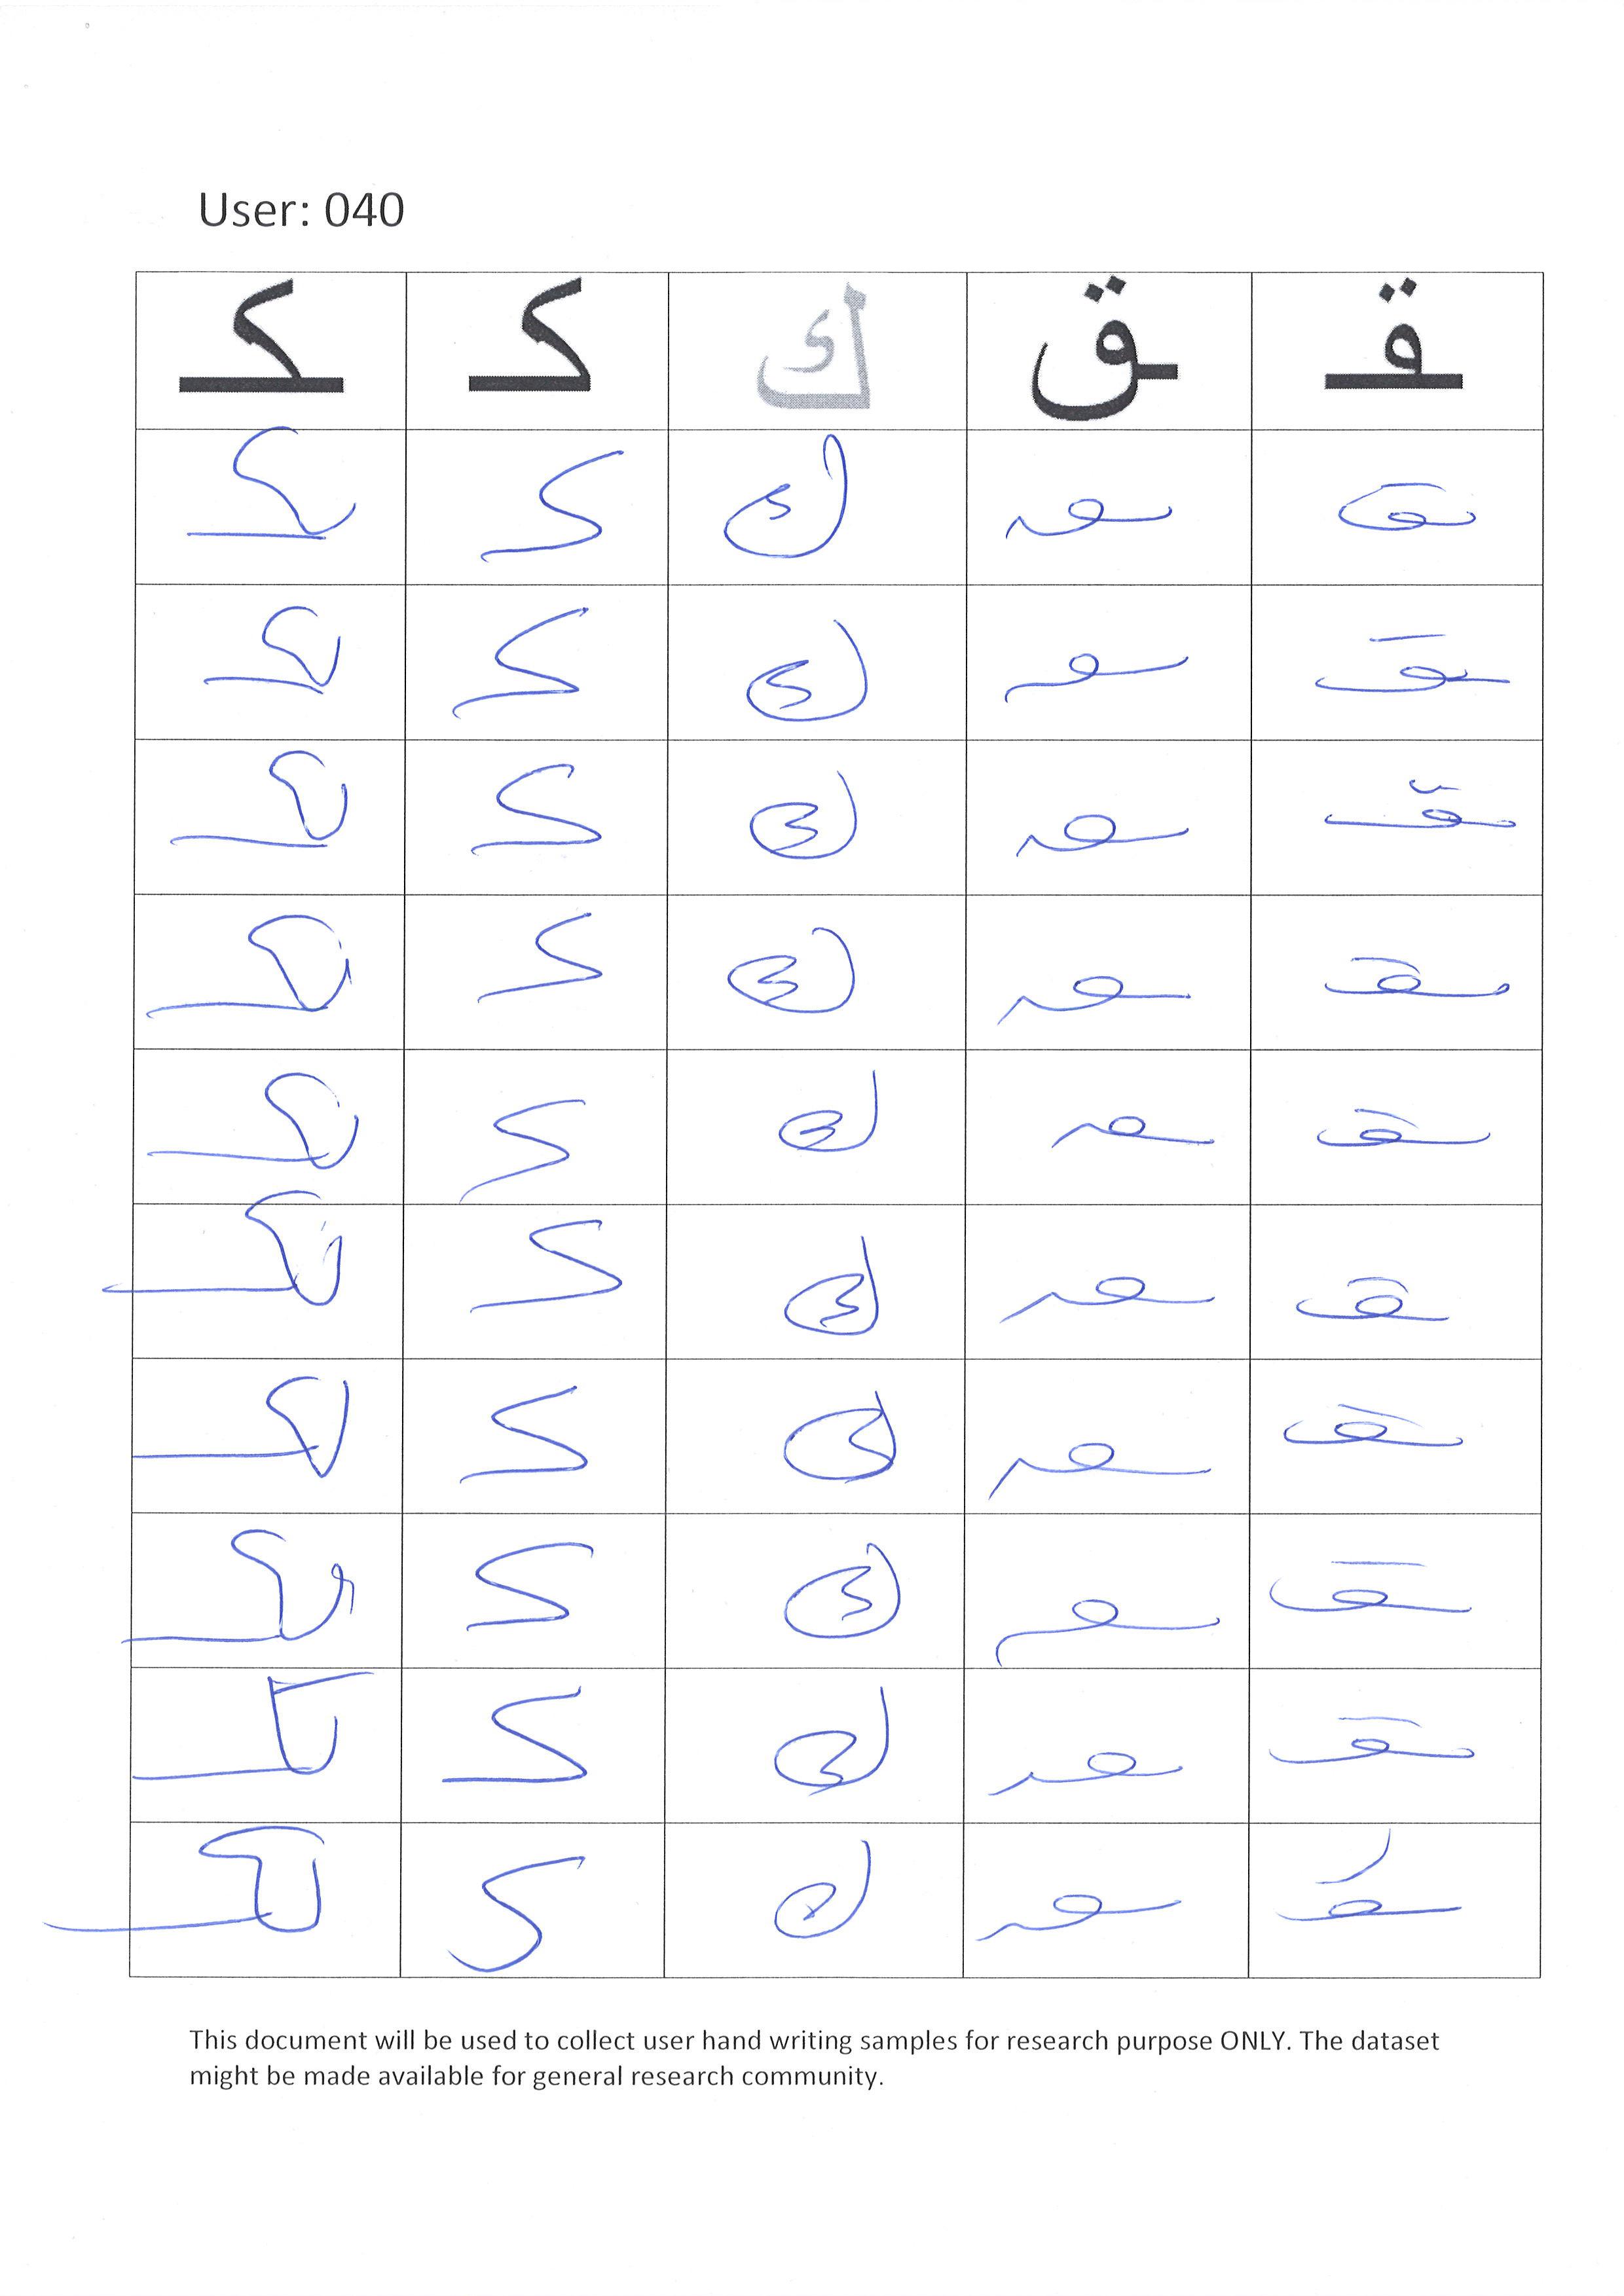 User: 040
ـكـ كـ ك ـق ـقـ
ـكـ كـ ك ـق ـقـ
ـكـ كـ ك ـق ـقـ
ـكـ كـ ك ـق ـقـ
ـكـ كـ ك ـق ـقـ
ـكـ كـ ك ـق ـقـ
ـكـ كـ ك ـق ـقـ
ـكـ كـ ك ـق ـقـ
ـكـ كـ ك ـق ـقـ
ـكـ كـ ك ـق ـقـ
ـكـ كـ ك ـق ـقـ
This document will be used to collect user hand writing samples for research purpose ONLY. The dataset
might be made available for general research community.